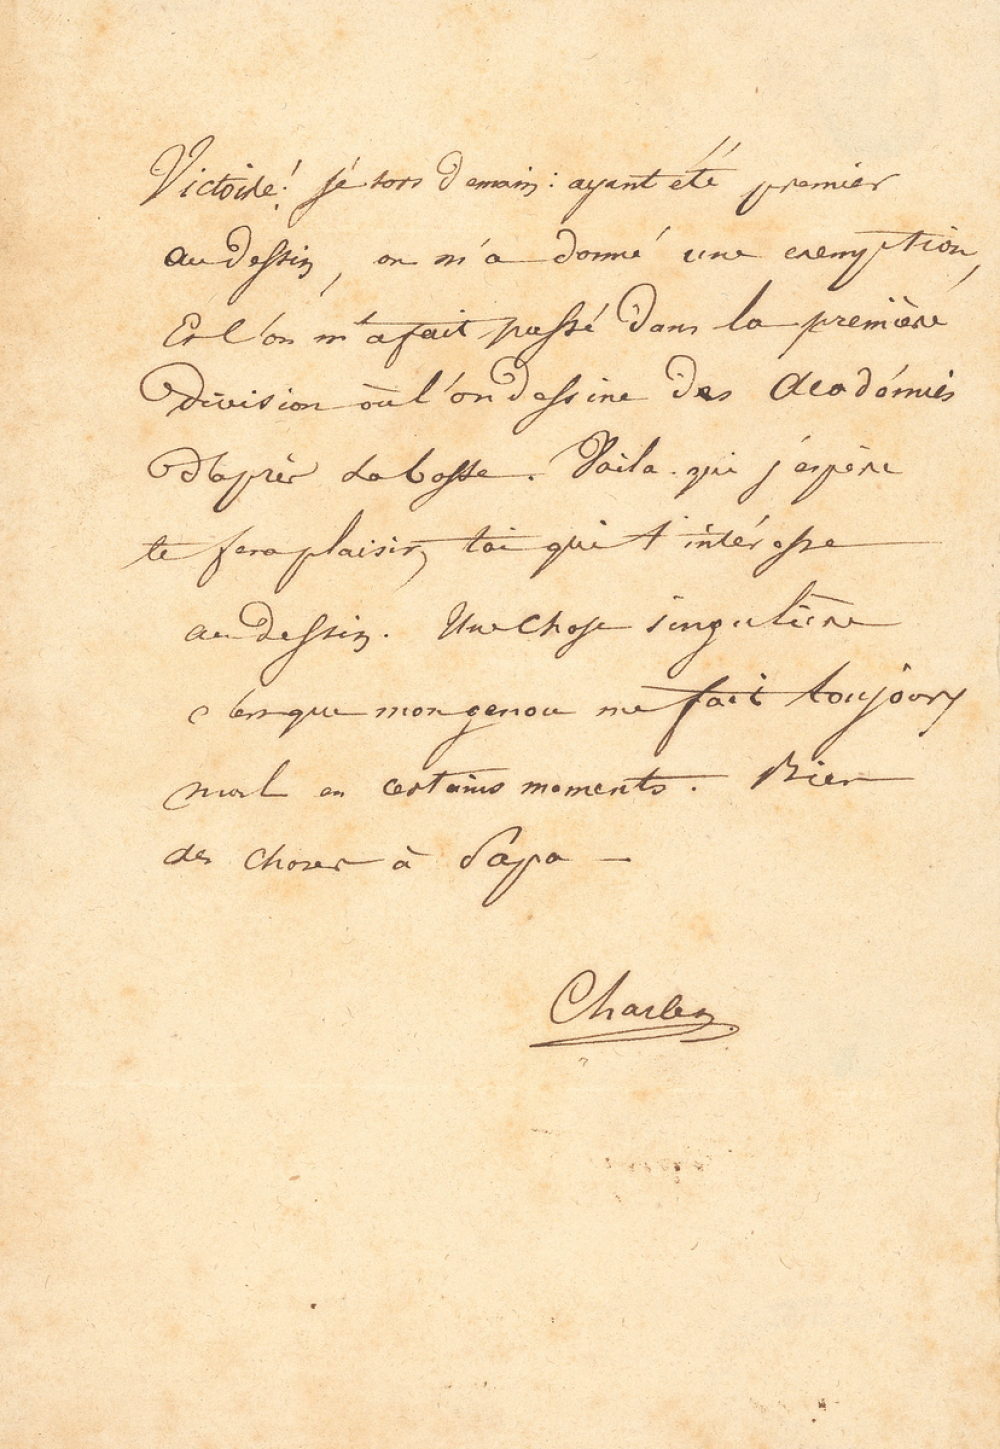 Victoire! je sors demain: ayant été premier
au dessin, on m'a donné une exemption,
Et l'on m'a fait passé dans la première
division où l'on dessine des Académies
d'après la bosse. Voila qui j'espère
te fera plaisir, toi qui t'intéresse
au dessin. Une chose singulière
c'est que mon genou me fait toujours
mal en certains moments. Bien
des choses à Papa —
Charles